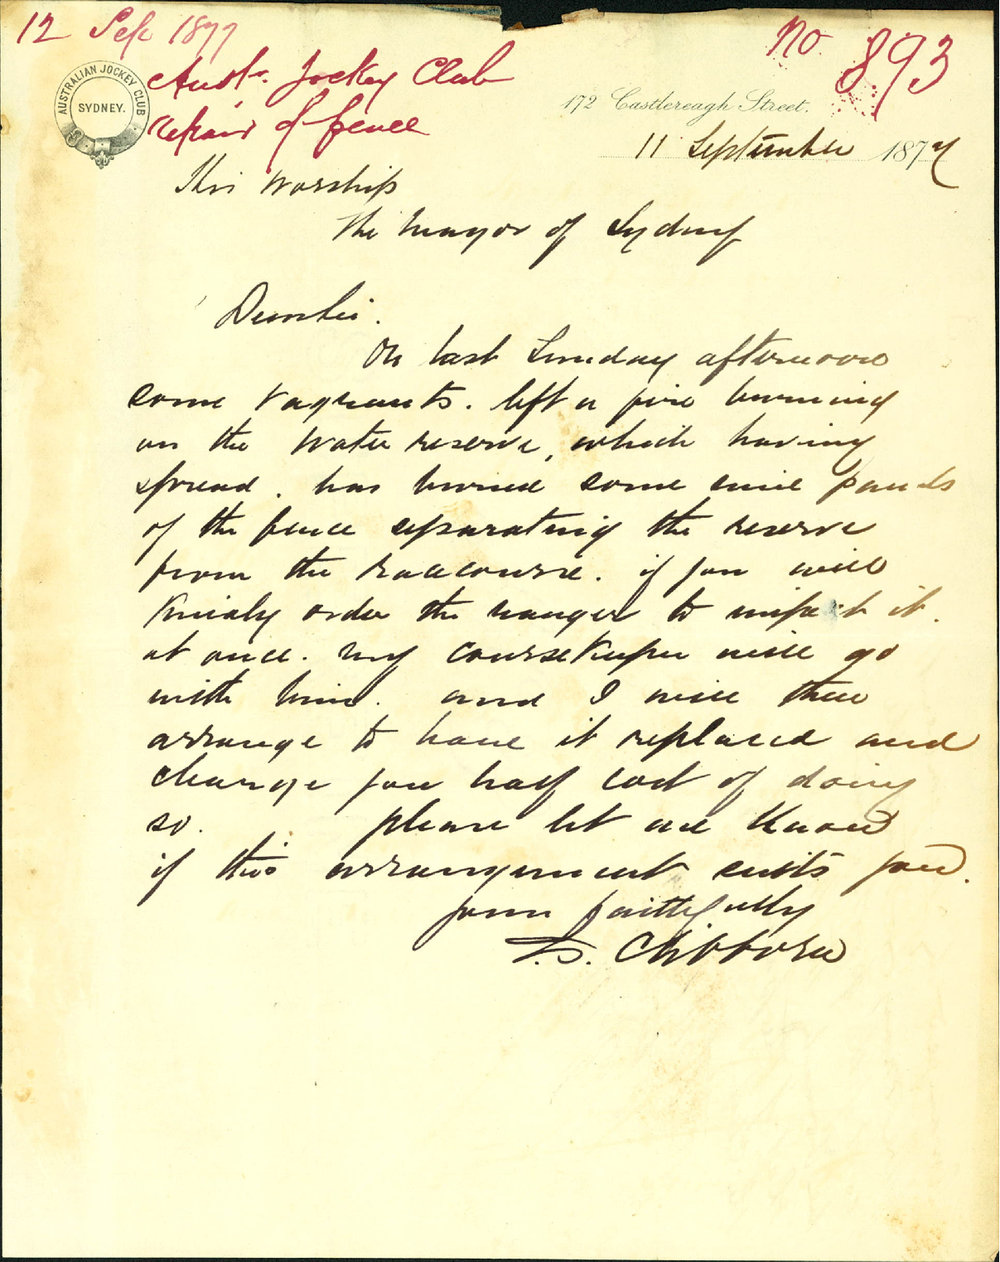 12 Sep 1877
No 893
Austn. Jockey Club
repair of fence
AUSTRALIAN JOCKEY CLUB
SYDNEY.
172 Castlereagh Street.
11 September 1877
His Worship
The Mayor of Sydney
Dear Sir.
On last Sunday afternoon
some vagrants. left a fire burning
on the Water reserve, which having
spread. has burned some nine panels
of the fence separating the reserve
from the racecourse. if you will
Kindly order the ranger to inspect it.
at once. my course Keeper will go
with him. and I will then
arrange to have it replaced and
charge you half cost of doing
so. please let me Know
if this arrangement suits you.
yours faithfully
T.S. Clibborn